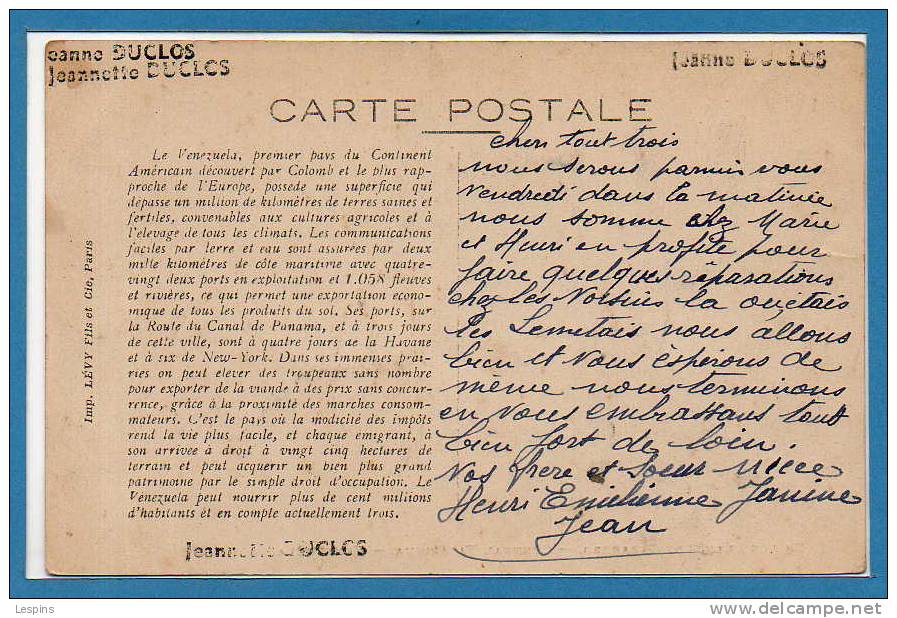 eanne DUCLOS
Jeannette DUCLOS
Jeanne DUCLOS
CARTE POSTALE
Le Venezuela, premier pays du Continent
Américain découvert par Colomb et le plus rap-
proche de l'Europe, possede une superficie qui
dépasse un million de kilomètres de terres saines et
fertiles, convenables aux cultures agricoles et à
l'élevage de tous les climats. Les communications
faciles par terre et eau sont assurées par deux
mille kilomètres de côte maritime avec quatre-
vingt deux ports en exploitation et 1.058 fleuves
et rivières, ce qui permet une exportation écono-
mique de tous les produits du sol. Ses ports, sur
la Route du Canal de Panama, et à trois jours
de cette ville, sont à quatre jours de la Havane
et à six de New-York. Dans ses immenses prai-
ries on peut elever des troupeaux sans nombre
pour exporter de la viande à des prix sans concur-
rence, grâce à la proximité des marches consom-
mateurs. C'est le pays où la modicité des impôts
rend la vie plus facile, et chaque émigrant, à
son arrivée a droit à vingt cinq hectares de
terrain et peut acquerir un bien plus grand
patrimoine par le simple droit d'occupation. Le
Vénezuela peut nourrir plus de cent millions
d'habitants et en compte actuellement trois.
Imp. LÉVY Fils et Cie, Paris
chers tout trois
nous serons parmis vous
Vendredi dans la matinée
nous somme chez Marie
et Henri en profite pour
faire quelques réparations
chez les la
les nous allons
bien et vous éspérons de
même nous terminons
en vous embrassans tout
bien fort de loin.
Vos frère et soeur niece
Henri Emilienne Janine
Jean
Jeannette DUCLOS
Lespins
www.delcampe.net